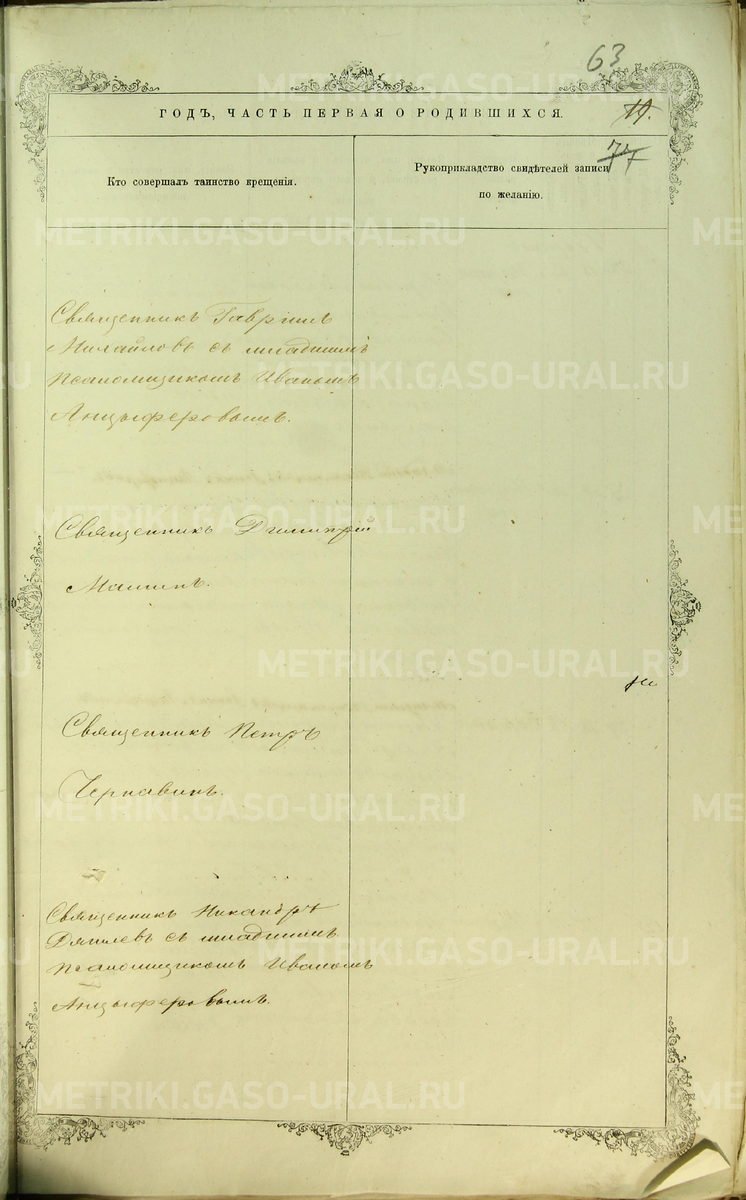 63
ГОДЪ, ЧАСТЬ ПЕРВАЯ О РОДИВШИХСЯ.
19.
77
Кто совершалъ таинство крещенія.
Рукоприкладство свидѣтелей записи
по желанію.
Священникъ Гавріилъ
съ младшимъ
псаломщикомъ Иваномъ
Анцыферовымъ.
Священникъ Димитрій
Маминъ.
Священникъ Петръ
Чернавинъ.
Священникъ Никандръ
съ младшимъ
псаломщикомъ Иваномъ
Анцыферовымъ.
METRIKI.GASO-URAL.RU